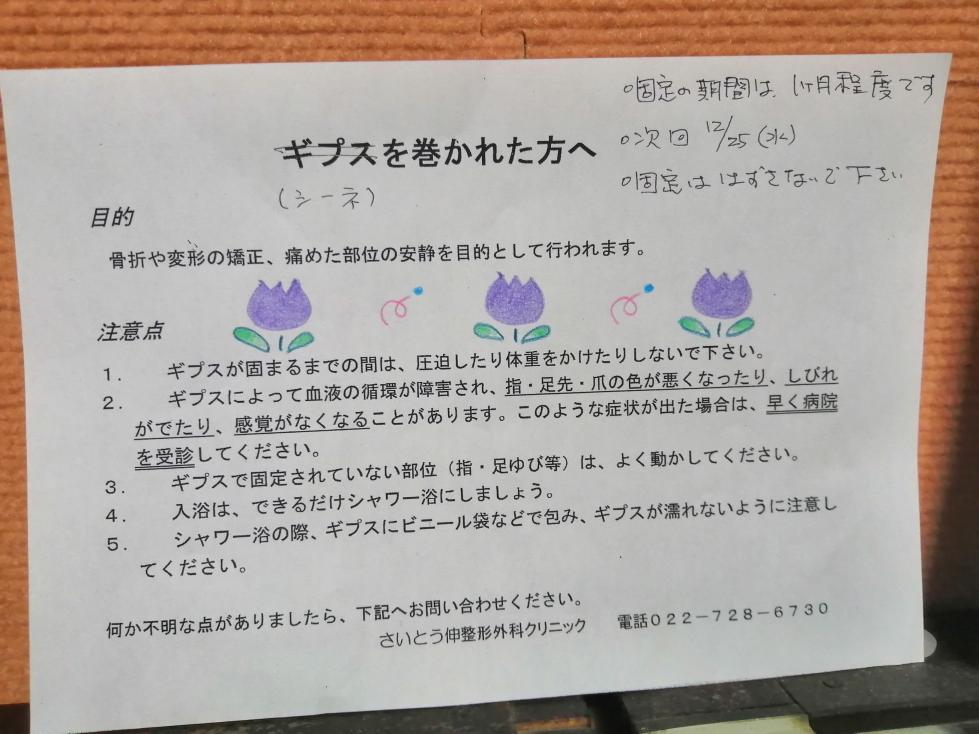 ○固定の期間は、1ヶ月程度です
○次回 12/25(水)
○固定ははずさないで下さい
ギプスを巻かれた方へ
(シーネ)
目的
骨折や変形の矯正、痛めた部位の安静を目的として行われます。
注意点
1. ギプスが固まるまでの間は、圧迫したり体重をかけたりしないで下さい。
2. ギプスによって血液の循環が障害され、指・足先・爪の色が悪くなったり、しびれ
がでたり、感覚がなくなることがあります。このような症状が出た場合は、早く病院
を受診してください。
3. ギプスで固定されていない部位(指・足ゆび等)は、よく動かしてください。
4. 入浴は、できるだけシャワー浴にしましょう。
5. シャワー浴の際、ギプスにビニール袋などで包み、ギプスが濡れないように注意し
てください。
何か不明な点がありましたら、下記へお問い合わせください。
さいとう伸整形外科クリニック 電話022-728-6730